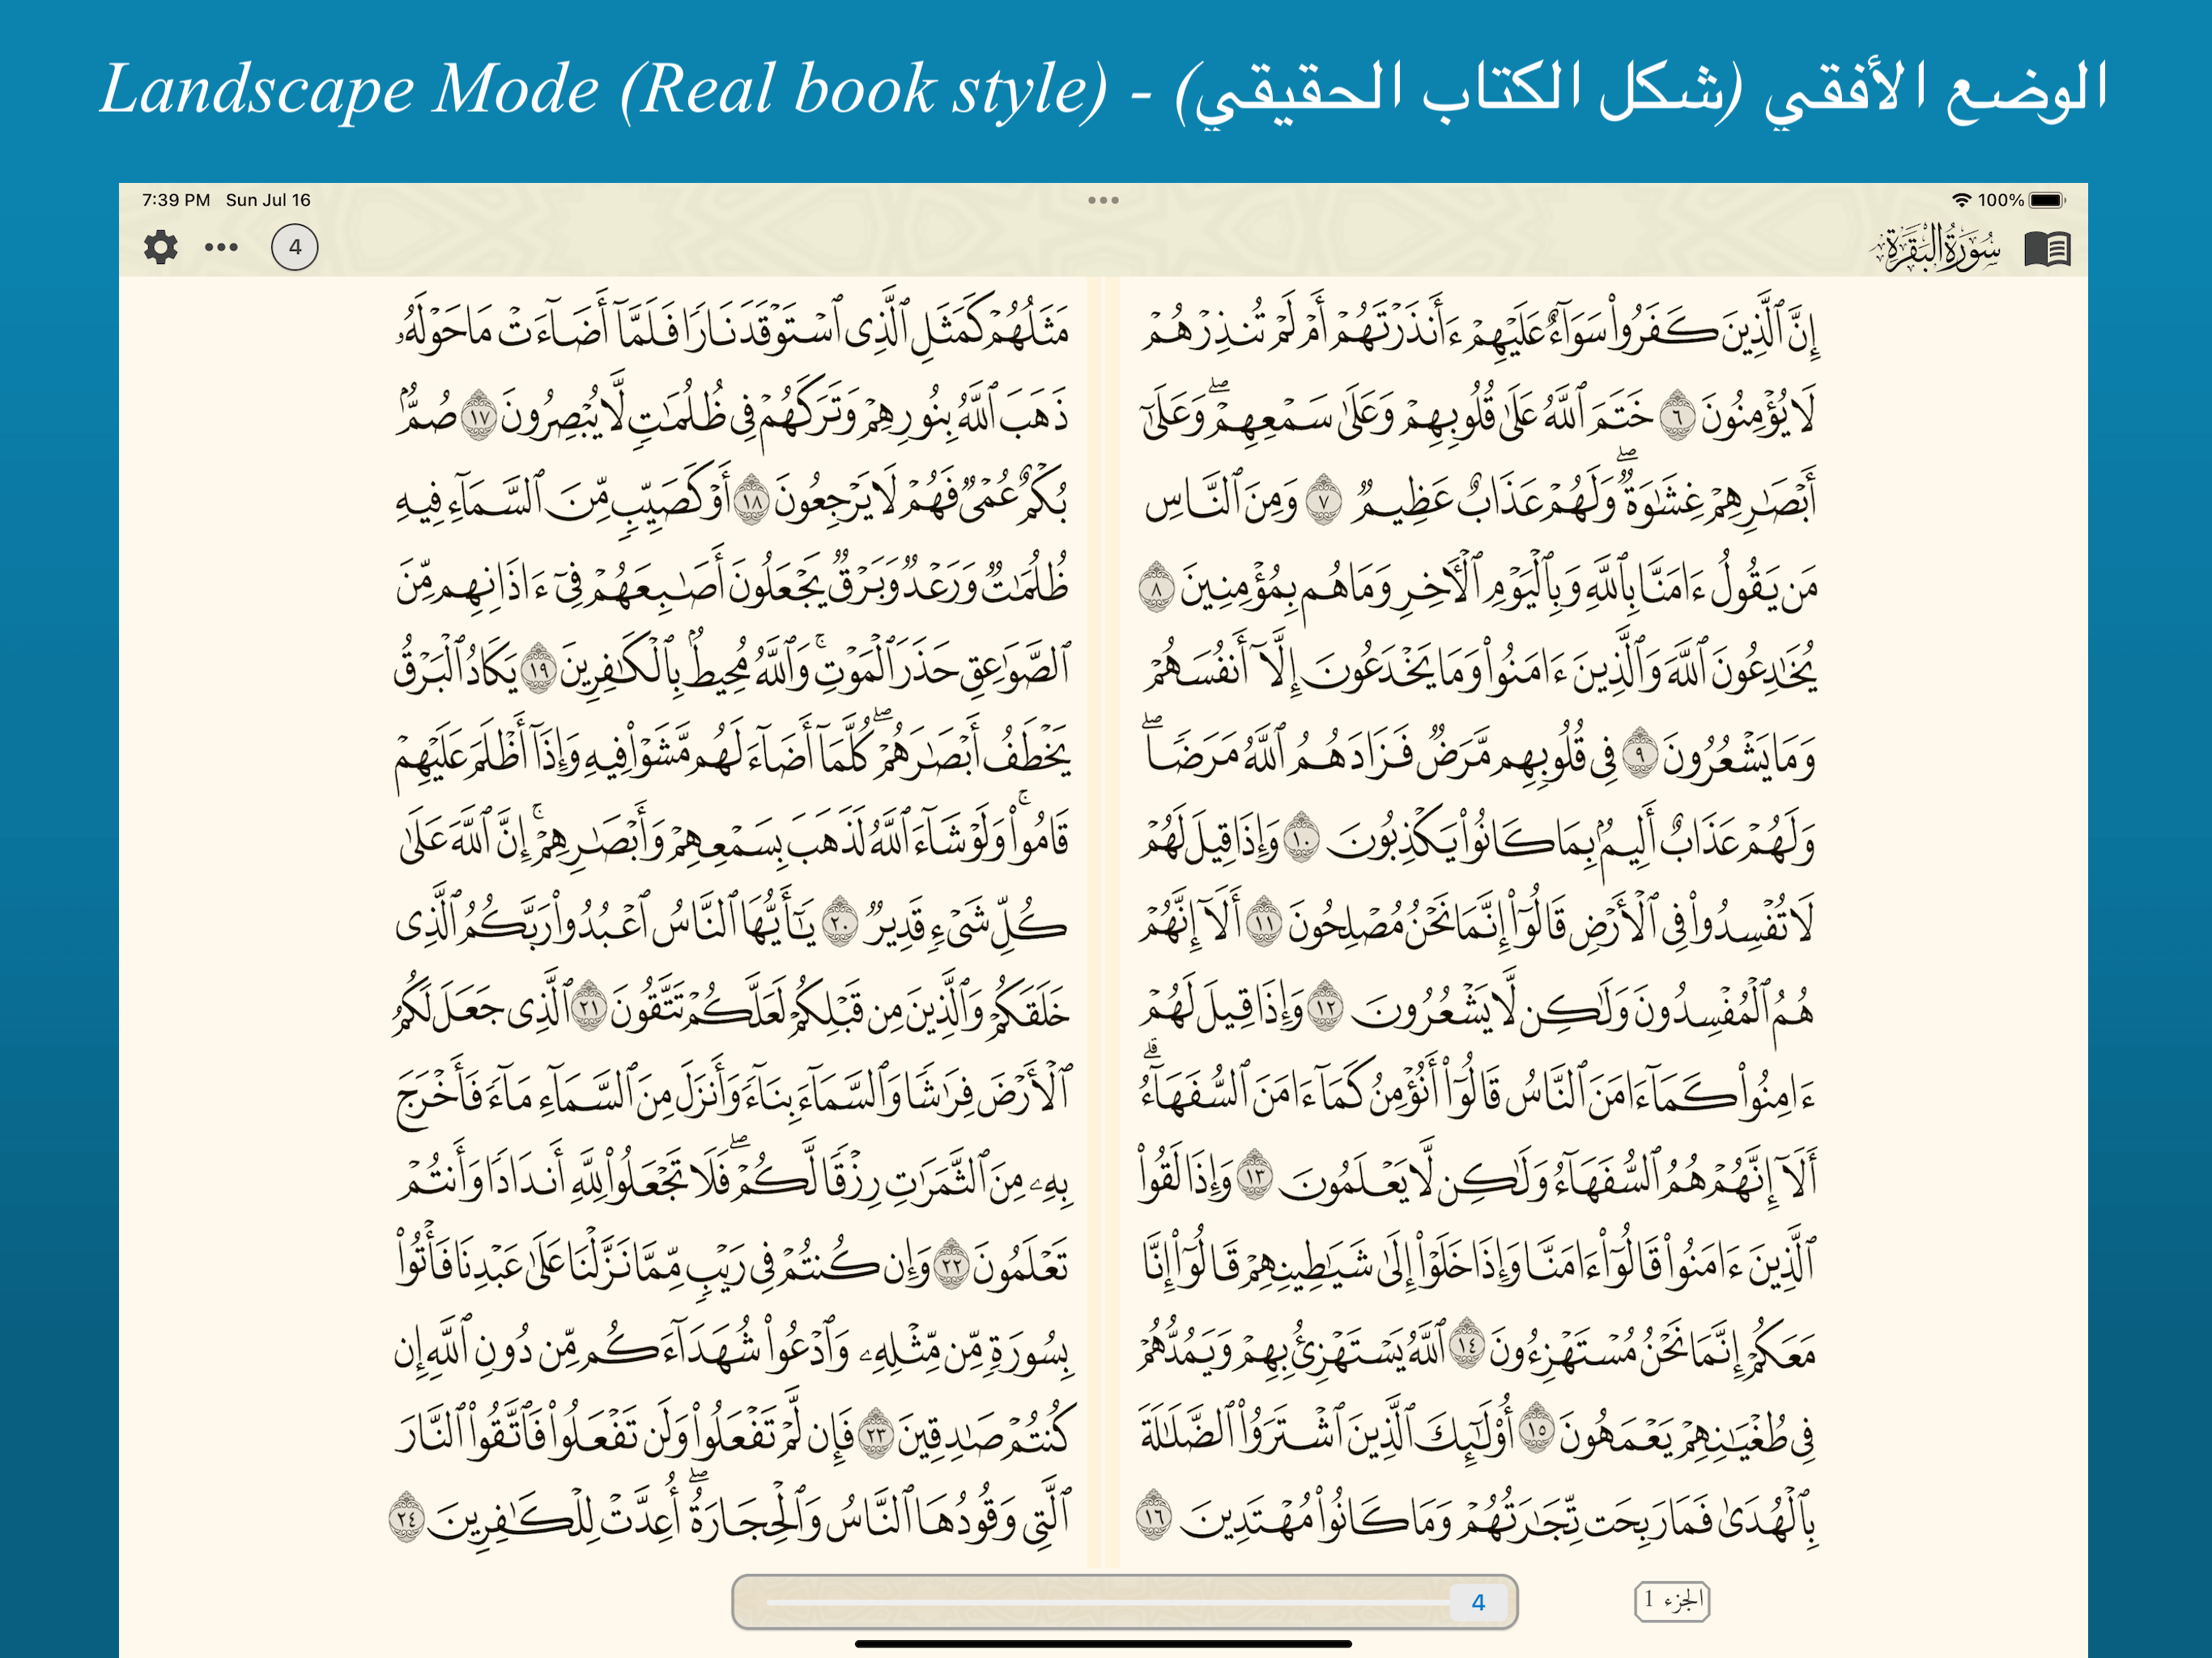 Landscape Mode (Real book style) - الوضع الأفقي (شكل الكتاب الحقيقي)
7:39 PM Sun Jul 16
100%
4
سُورَةُ البَقَرَةِ
إِنَّ ٱلَّذِينَ كَفَرُوا۟ سَوَآءٌ عَلَيْهِمْ ءَأَنذَرْتَهُمْ أَمْ لَمْ تُنذِرْهُمْ
لَا يُؤْمِنُونَ ٦ خَتَمَ ٱللَّهُ عَلَىٰ قُلُوبِهِمْ وَعَلَىٰ سَمْعِهِمْ ۖ وَعَلَىٰٓ
أَبْصَـٰرِهِمْ غِشَـٰوَةٌ ۖ وَلَهُمْ عَذَابٌ عَظِيمٌ ٧ وَمِنَ ٱلنَّاسِ
مَن يَقُولُ ءَامَنَّا بِٱللَّهِ وَبِٱلْيَوْمِ ٱلْـَٔاخِرِ وَمَا هُم بِمُؤْمِنِينَ ٨
يُخَـٰدِعُونَ ٱللَّهَ وَٱلَّذِينَ ءَامَنُوا۟ وَمَا يَخْدَعُونَ إِلَّآ أَنفُسَهُمْ
وَمَا يَشْعُرُونَ ٩ فِى قُلُوبِهِم مَّرَضٌ فَزَادَهُمُ ٱللَّهُ مَرَضًا ۖ
وَلَهُمْ عَذَابٌ أَلِيمٌۢ بِمَا كَانُوا۟ يَكْذِبُونَ ١٠ وَإِذَا قِيلَ لَهُمْ
لَا تُفْسِدُوا۟ فِى ٱلْأَرْضِ قَالُوٓا۟ إِنَّمَا نَحْنُ مُصْلِحُونَ ١١ أَلَآ إِنَّهُمْ
هُمُ ٱلْمُفْسِدُونَ وَلَـٰكِن لَّا يَشْعُرُونَ ١٢ وَإِذَا قِيلَ لَهُمْ
ءَامِنُوا۟ كَمَآ ءَامَنَ ٱلنَّاسُ قَالُوٓا۟ أَنُؤْمِنُ كَمَآ ءَامَنَ ٱلسُّفَهَآءُ ۗ
أَلَآ إِنَّهُمْ هُمُ ٱلسُّفَهَآءُ وَلَـٰكِن لَّا يَعْلَمُونَ ١٣ وَإِذَا لَقُوا۟
ٱلَّذِينَ ءَامَنُوا۟ قَالُوٓا۟ ءَامَنَّا وَإِذَا خَلَوْا۟ إِلَىٰ شَيَـٰطِينِهِمْ قَالُوٓا۟ إِنَّا
مَعَكُمْ إِنَّمَا نَحْنُ مُسْتَهْزِءُونَ ١٤ ٱللَّهُ يَسْتَهْزِئُ بِهِمْ وَيَمُدُّهُمْ
فِى طُغْيَـٰنِهِمْ يَعْمَهُونَ ١٥ أُو۟لَـٰٓئِكَ ٱلَّذِينَ ٱشْتَرَوُا۟ ٱلضَّلَـٰلَةَ
بِٱلْهُدَىٰ فَمَا رَبِحَت تِّجَـٰرَتُهُمْ وَمَا كَانُوا۟ مُهْتَدِينَ ١٦
مَثَلُهُمْ كَمَثَلِ ٱلَّذِى ٱسْتَوْقَدَ نَارًا فَلَمَّآ أَضَآءَتْ مَا حَوْلَهُۥ
ذَهَبَ ٱللَّهُ بِنُورِهِمْ وَتَرَكَهُمْ فِى ظُلُمَـٰتٍ لَّا يُبْصِرُونَ ١٧ صُمٌّۢ
بُكْمٌ عُمْىٌ فَهُمْ لَا يَرْجِعُونَ ١٨ أَوْ كَصَيِّبٍ مِّنَ ٱلسَّمَآءِ فِيهِ
ظُلُمَـٰتٌ وَرَعْدٌ وَبَرْقٌ يَجْعَلُونَ أَصَـٰبِعَهُمْ فِىٓ ءَاذَانِهِم مِّنَ
ٱلصَّوَٰعِقِ حَذَرَ ٱلْمَوْتِ ۚ وَٱللَّهُ مُحِيطٌۢ بِٱلْكَـٰفِرِينَ ١٩ يَكَادُ ٱلْبَرْقُ
يَخْطَفُ أَبْصَـٰرَهُمْ ۖ كُلَّمَآ أَضَآءَ لَهُم مَّشَوْا۟ فِيهِ وَإِذَآ أَظْلَمَ عَلَيْهِمْ
قَامُوا۟ ۚ وَلَوْ شَآءَ ٱللَّهُ لَذَهَبَ بِسَمْعِهِمْ وَأَبْصَـٰرِهِمْ ۚ إِنَّ ٱللَّهَ عَلَىٰ
كُلِّ شَىْءٍ قَدِيرٌ ٢٠ يَـٰٓأَيُّهَا ٱلنَّاسُ ٱعْبُدُوا۟ رَبَّكُمُ ٱلَّذِى
خَلَقَكُمْ وَٱلَّذِينَ مِن قَبْلِكُمْ لَعَلَّكُمْ تَتَّقُونَ ٢١ ٱلَّذِى جَعَلَ لَكُمُ
ٱلْأَرْضَ فِرَٰشًا وَٱلسَّمَآءَ بِنَآءً وَأَنزَلَ مِنَ ٱلسَّمَآءِ مَآءً فَأَخْرَجَ
بِهِۦ مِنَ ٱلثَّمَرَٰتِ رِزْقًا لَّكُمْ ۖ فَلَا تَجْعَلُوا۟ لِلَّهِ أَندَادًا وَأَنتُمْ
تَعْلَمُونَ ٢٢ وَإِن كُنتُمْ فِى رَيْبٍ مِّمَّا نَزَّلْنَا عَلَىٰ عَبْدِنَا فَأْتُوا۟
بِسُورَةٍ مِّن مِّثْلِهِۦ وَٱدْعُوا۟ شُهَدَآءَكُم مِّن دُونِ ٱللَّهِ إِن
كُنتُمْ صَـٰدِقِينَ ٢٣ فَإِن لَّمْ تَفْعَلُوا۟ وَلَن تَفْعَلُوا۟ فَٱتَّقُوا۟ ٱلنَّارَ
ٱلَّتِى وَقُودُهَا ٱلنَّاسُ وَٱلْحِجَارَةُ ۖ أُعِدَّتْ لِلْكَـٰفِرِينَ ٢٤
الجزء 1
4